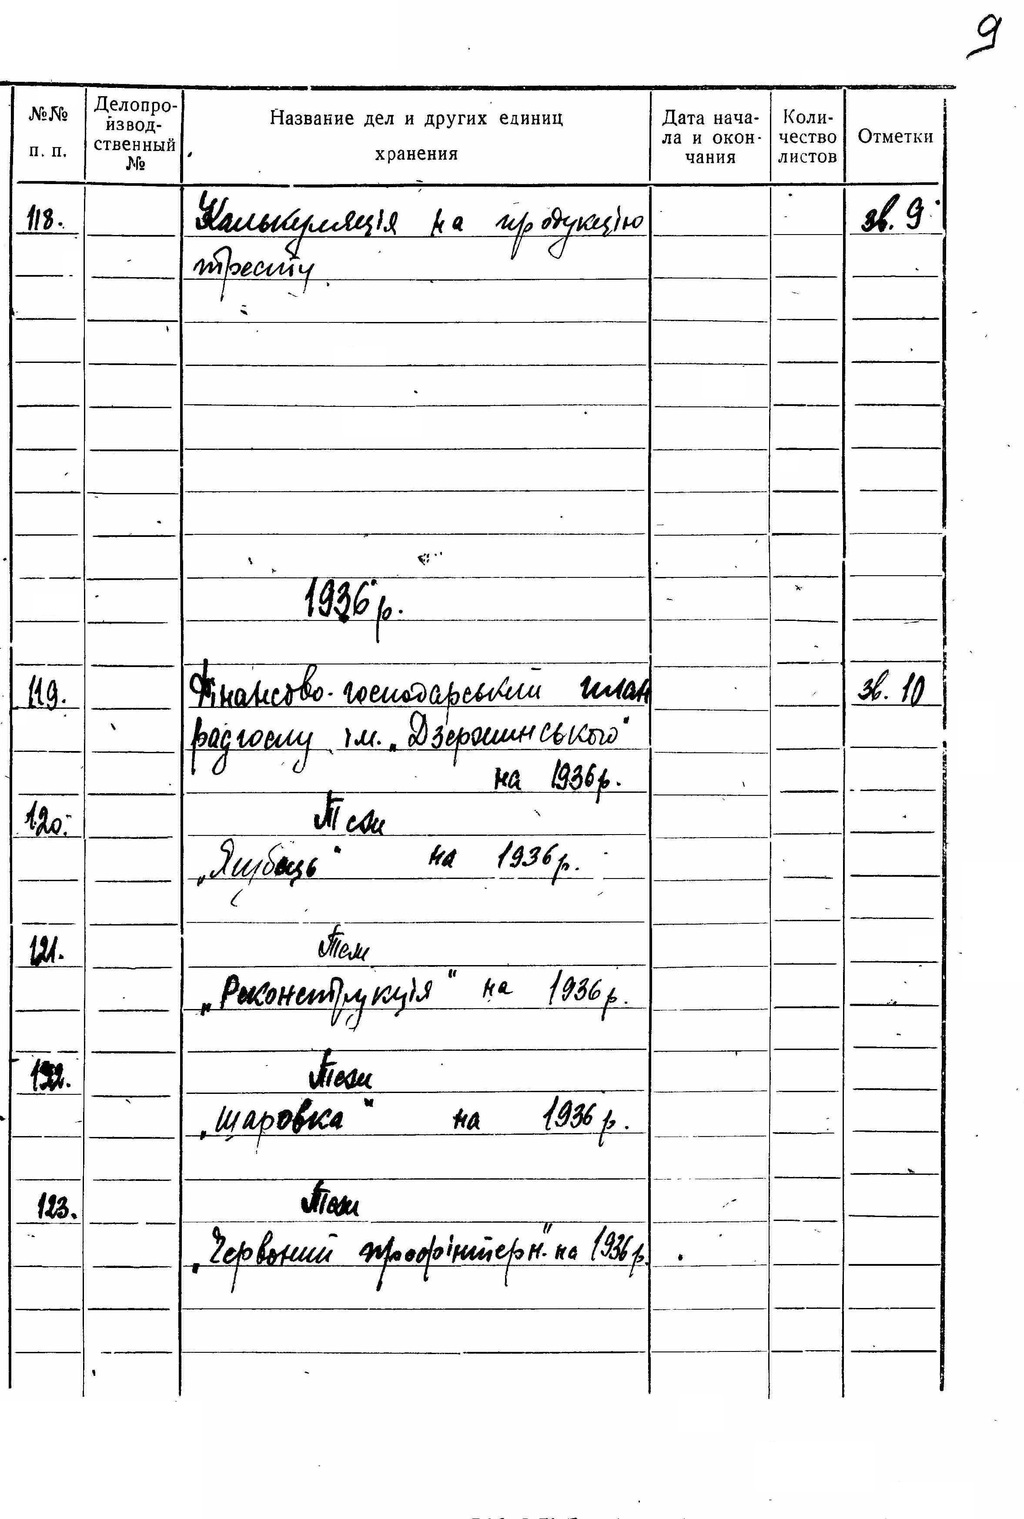 9
№№ п. п. Делопро- Название дел и других единиц Дата нача- Коли- Отметки
изводственный № хранения ла и окон- чества
чания листов
118. Калькуляція на продукцію зв. 9
тресту
1936 р.
119. Фінансово-господарський план зв. 10
радгоспу ім. „Дзержинського"
на 1936 р.
120.
на 1936 р.
121.
„Реконструкція" на 1936 р.
122.
„Шаровка" на 1936 р.
123.
„Червоний профінтерн" на 1936 р.